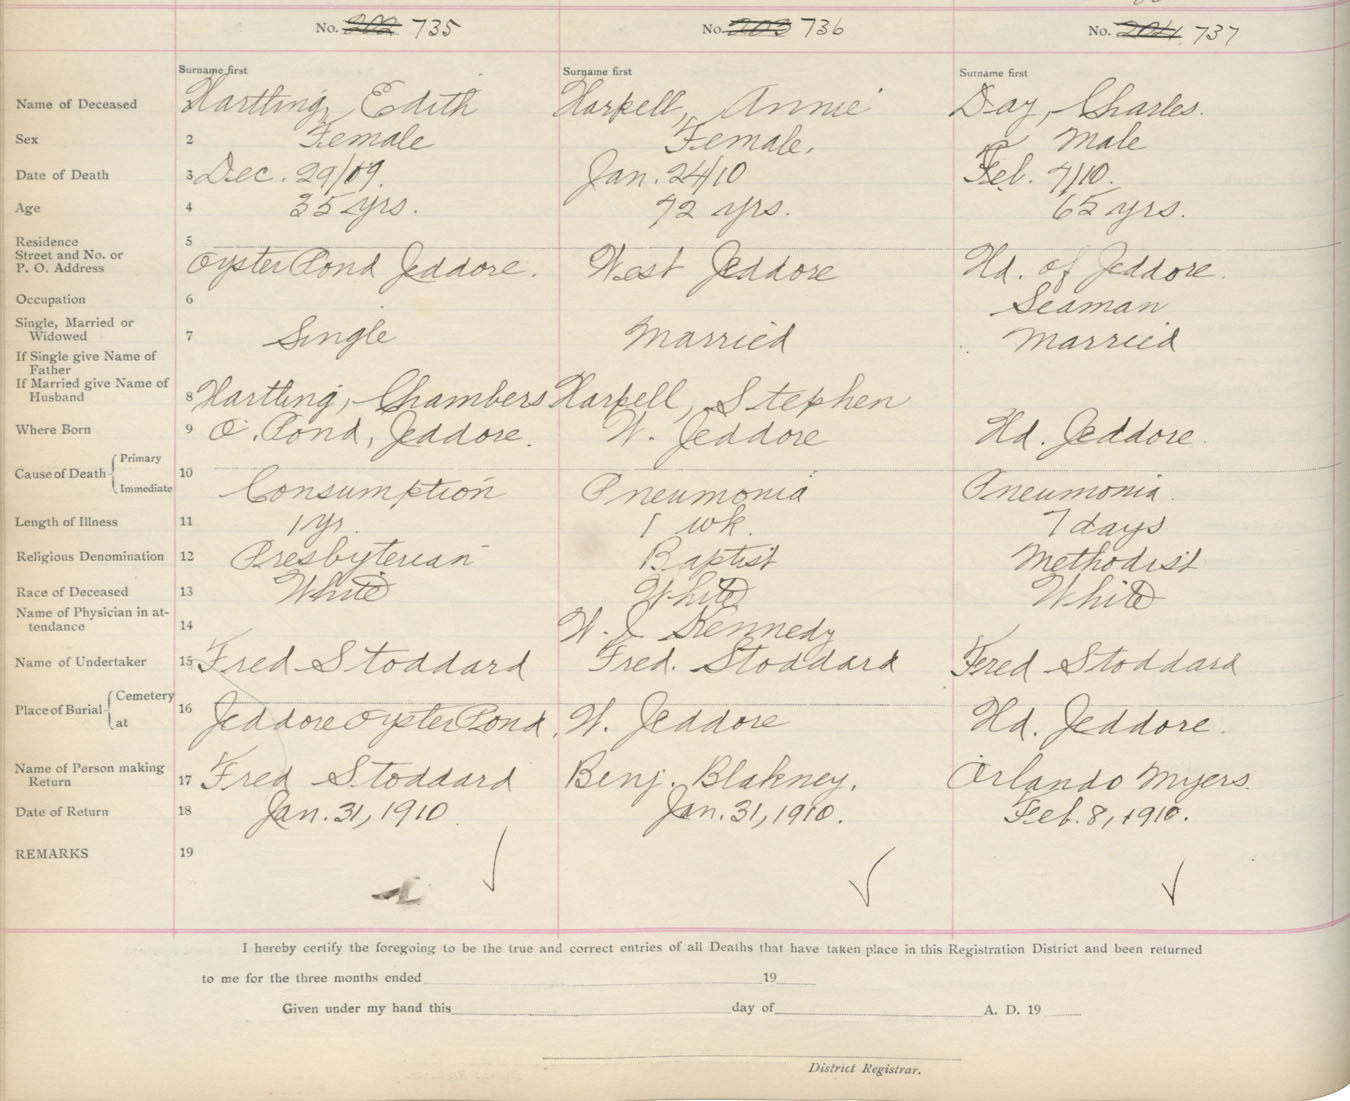 No. 202 735 No. 203 736 No. 204 737
Surname first Surname first Surname first
Name of Deceased Hartling, Edith Harpell, Annie Day, Charles.
Sex 2 Female Female, Male
Date of Death 3 Dec. 29/09. Jan. 24/10 Feb. 7/10.
Age 4 35 yrs. 72 yrs. 65 yrs.
Residence 5
Street and No. or
P. O. Address Oyster Pond Jeddore. West Jeddore Hd. of Jeddore.
Occupation 6 Seaman
Single, Married or
Widowed 7 Single Married Married
If Single give Name of
Father
If Married give Name of
Husband 8 Hartling, Chambers Harpell, Stephen
Where Born 9 O. Pond, Jeddore. W. Jeddore Hd. Jeddore.
Cause of Death Primary
Immediate 10 Consumption Pneumonia Pneumonia.
Length of Illness 11 1 yr. 1 wk. 7 days
Religious Denomination 12 Presbyterian Baptist Methodist
Race of Deceased 13 White White White
Name of Physician in at-
tendance 14 W. J. Kennedy
Name of Undertaker 15 Fred Stoddard Fred. Stoddard Fred Stoddard
Place of Burial Cemetery
at 16 Jeddore Oyster Pond, W. Jeddore Hd. Jeddore.
Name of Person making
Return 17 Fred Stoddard Benj. Blakney. Orlando Myers.
Date of Return 18 Jan. 31, 1910. Jan. 31, 1910. Feb. 8, 1910.
REMARKS 19
I hereby certify the foregoing to be the true and correct entries of all Deaths that have taken place in this Registration District and been returned
to me for the three months ended 19
Given under my hand this day of A. D. 19
District Registrar.